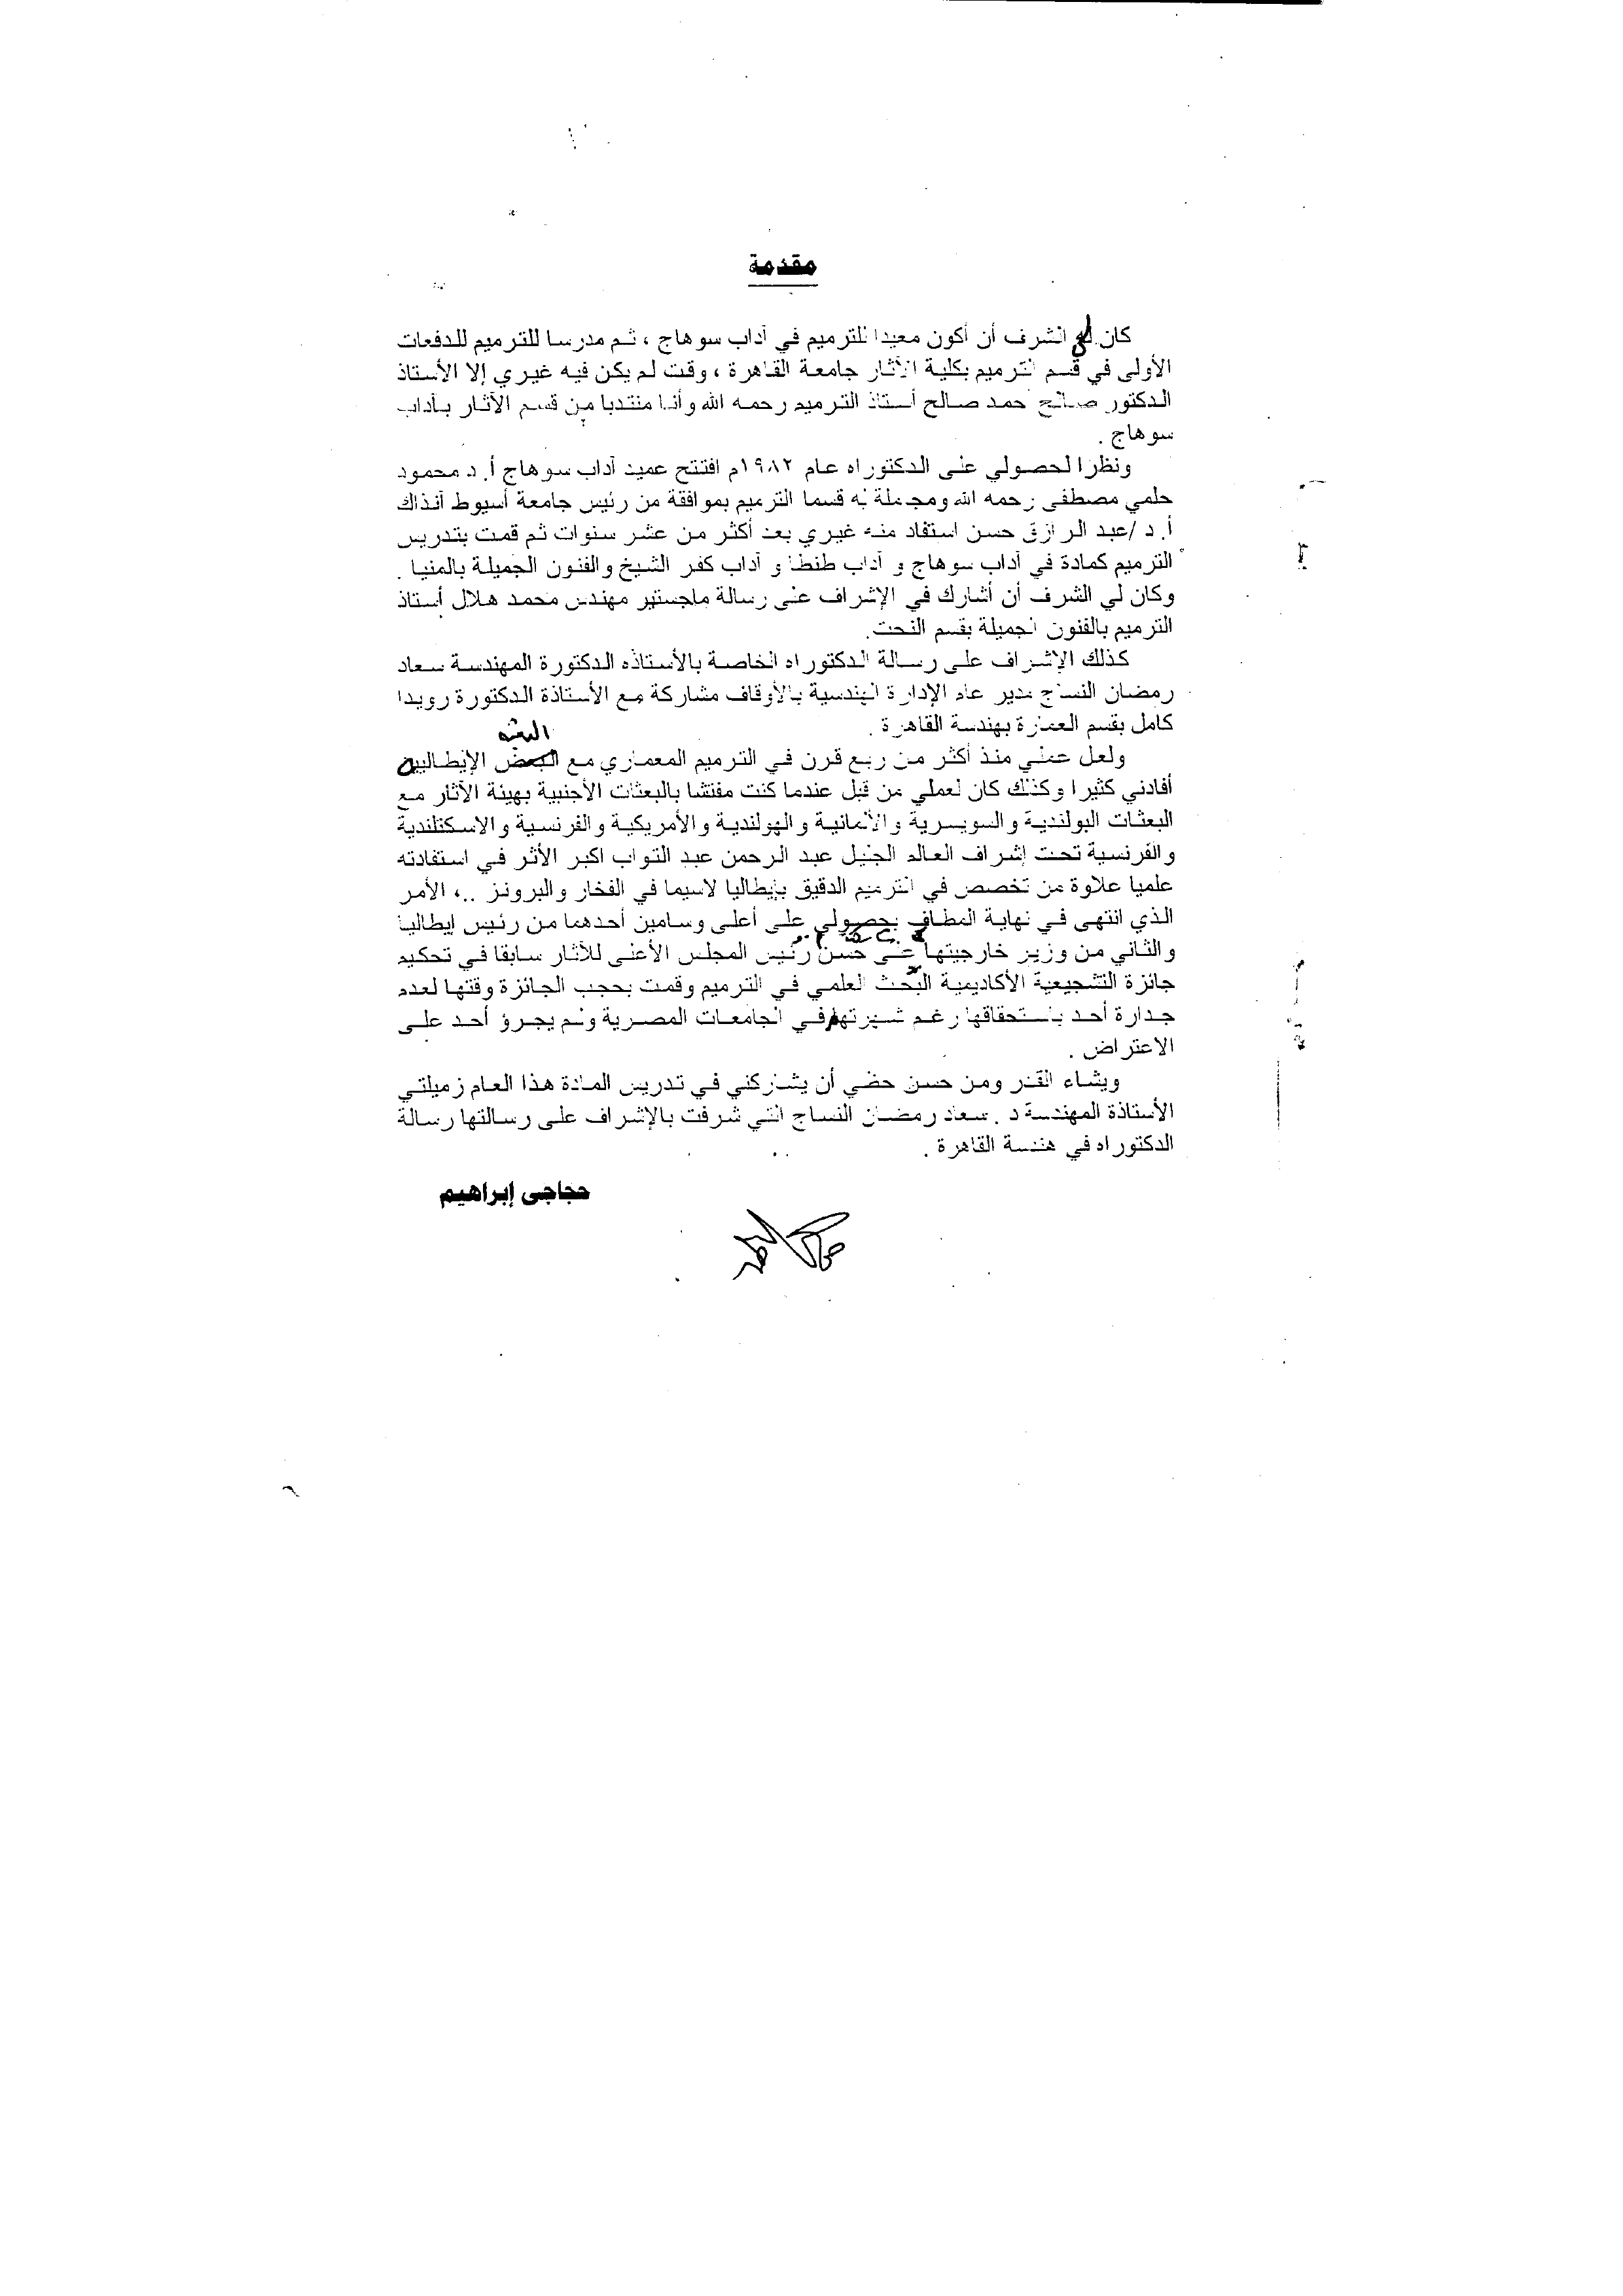 مقدمة
كان لي الشرف أن أكون معيدا للترميم في آداب سوهاج ، ثم مدرسا للترميم للدفعات
الأولى في قسم الترميم بكلية الآثار جامعة القاهرة ، وقت لم يكن فيه غيري إلا الأستاذ
الدكتور صالح حمد صالح أستاذ الترميم رحمه الله وأنا منتدبا من قسم الآثار بآداب
سوهاج .
ونظرا لحصولي على الدكتوراه عام ١٩٨٢م افتتح عميد آداب سوهاج أ. د محمود
حلمي مصطفى رحمه الله ومجملة به قسما الترميم بموافقة من رئيس جامعة أسيوط آنذاك
أ. د /عبد الرازق حسن استفاد منه غيري بعد أكثر من عشر سنوات ثم قمت بتدريس
الترميم كمادة في آداب سوهاج و آداب طنطا و آداب كفر الشيخ والفنون الجميلة بالمنيا .
وكان لي الشرف أن أشارك في الإشراف على رسالة ماجستير مهندس محمد هلال أستاذ
الترميم بالفنون الجميلة بقسم النحت.
كذلك الإشراف على رسالة الدكتوراه الخاصة بالأستاذه الدكتورة المهندسة سعاد
رمضان النساج مدير عام الإدارة الهندسية بالأوقاف مشاركة مع الأستاذة الدكتورة رويدا
كامل بقسم العمارة بهندسة القاهرة .
البعثه
ولعل عملي منذ أكثر من ربع قرن في الترميم المعماري مع البعض الإيطاليين
أفادني كثيرا وكذلك كان لعملي من قبل عندما كنت مفتشا بالبعثات الأجنبية بهيئة الآثار مع
البعثات البولندية والسويسرية والألمانية والهولندية والأمريكية والفرنسية والاسكتلندية
والفرنسية تحت إشراف العالم الجليل عبد الرحمن عبد التواب اكبر الأثر في استفادته
علميا علاوة من تخصص في الترميم الدقيق بإيطاليا لاسيما في الفخار والبرونز ..، الأمر
الذي انتهى في نهاية المطاف بحصولي على أعلى وسامين أحدهما من رئيس إيطاليا
والثاني من وزير خارجيتها على حسن رئيس المجلس الأعلى للآثار سابقا في تحكيم
جائزة التشجيعية الأكاديمية البحث العلمي في الترميم وقمت بحجب الجائزة وقتها لعدم
جدارة أحد باستحقاقها رغم شهرتهم في الجامعات المصرية ولم يجرؤ أحد على
الاعتراض .
ويشاء القدر ومن حسن حضي أن يشاركني في تدريس المادة هذا العام زميلتي
الأستاذة المهندسة د . سعاد رمضان النساج التي شرفت بالإشراف على رسالتها رسالة
الدكتوراه في هندسة القاهرة .
حجاجى إبراهيم